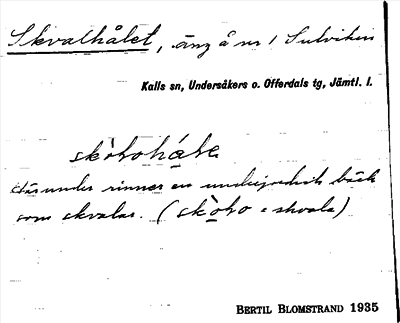 Skvalhålet, äng å nr 1 Sulviken
Kalls sn, Undersåkers o. Offerdals tg, Jämtl. l.
Därunder rinner en underjordisk bäck
som skvalar. ( = skvala)
BERTIL BLOMSTRAND 1935